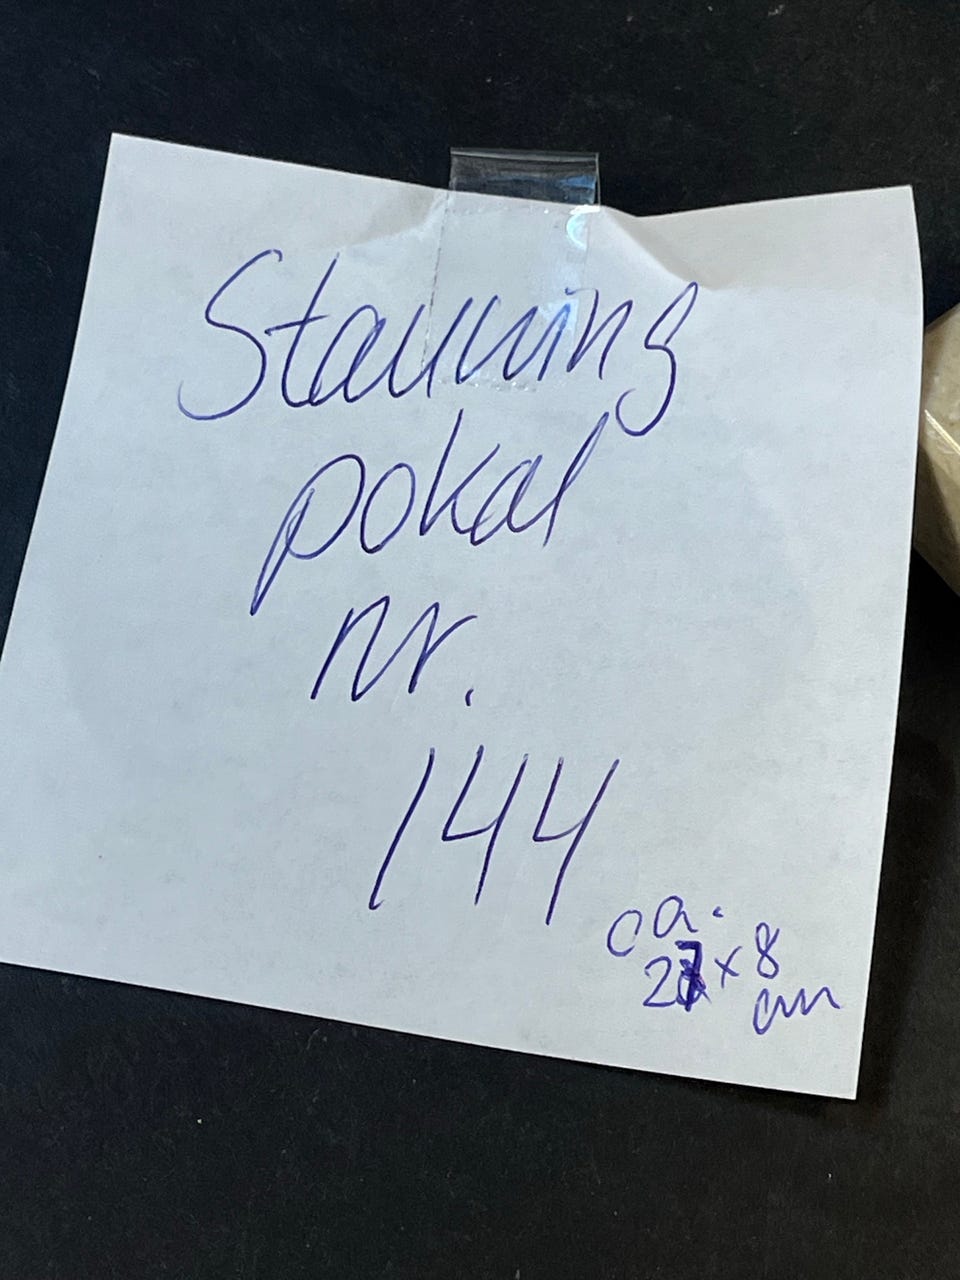 Stauning
pokal
nr.
144
ca.
27 x 8
cm